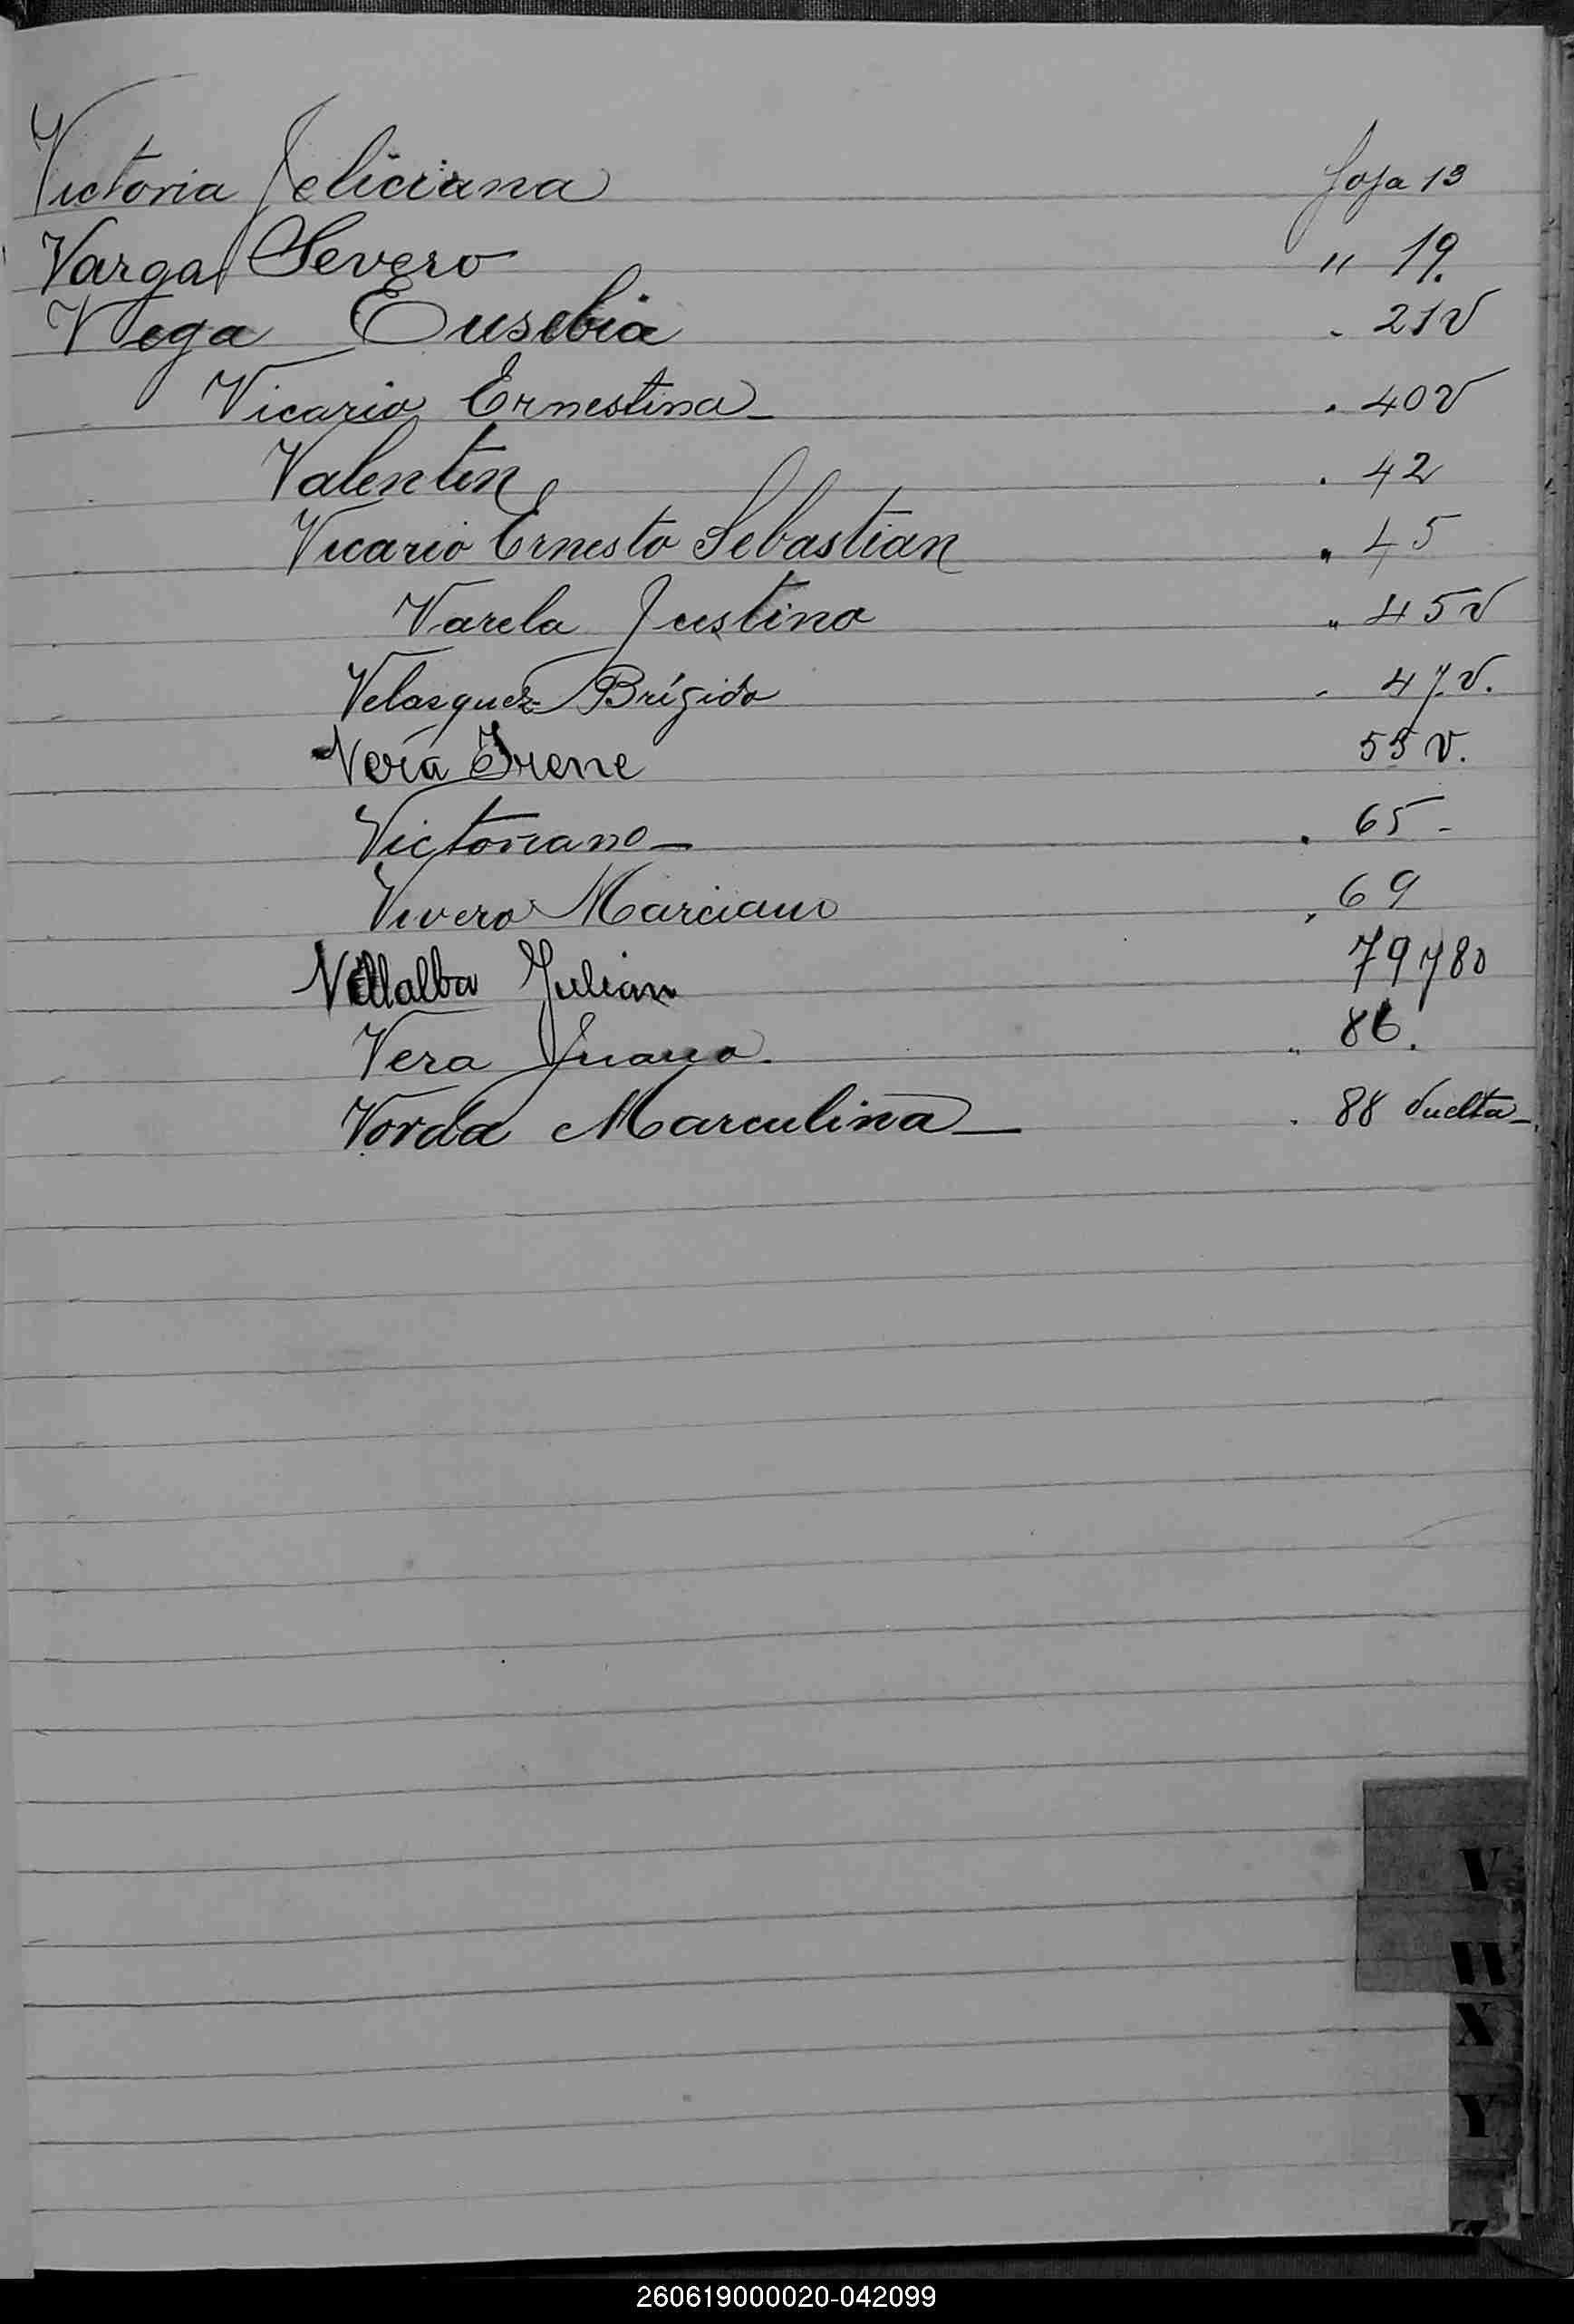 Victoria Feliciana foja 13
Varga Severo " 19.
Vega Eusebia . 21v
Vicario Ernestina - . 40v
Valentin . 42
Vicario Ernesto Sebastian " 45
Varela Justino " 45v
Velasquez Brígido - 47v.
Vera Irene 55v.
Victoriano - . 65 -
Vivero Marciano , 69
Villalba Julian 79 y 80
Vera Juana. " 86.
Vorda Marculina - . 88 vuelta -
V
W
X
Y
260619000020-042099